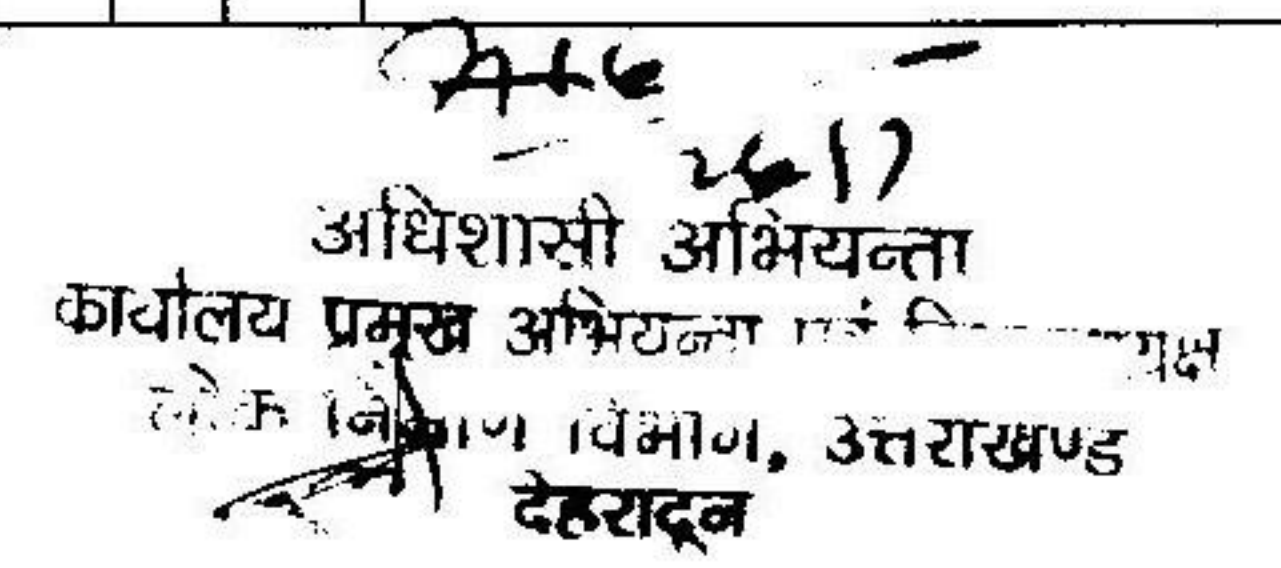 अधिशासी अभियन्ता
कार्यालय प्रमुख अभियन्ता एवं
लोक निर्माण विभाग, उत्तराखण्ड
देहरादून